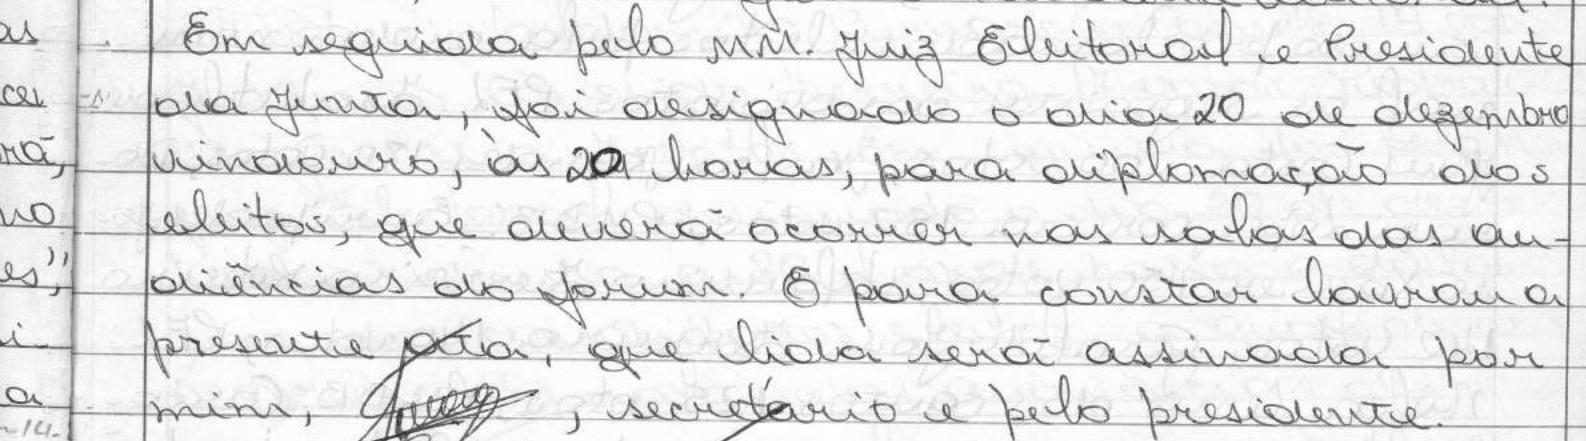 Em seguida pelo MM. Juiz Eleitoral e Presidente
da Junta, foi designado o dia 20 de dezembro
vindouro, às 20 horas, para diplomação dos
eleitos, que deverá ocorrer nas salas das au-
diências do forum. E para constar lavrou a
presente ata, que lida será assinada por
mim, , secretário e pelo presidente.
as
cei
rá,
no
es";
i-
a
-14-